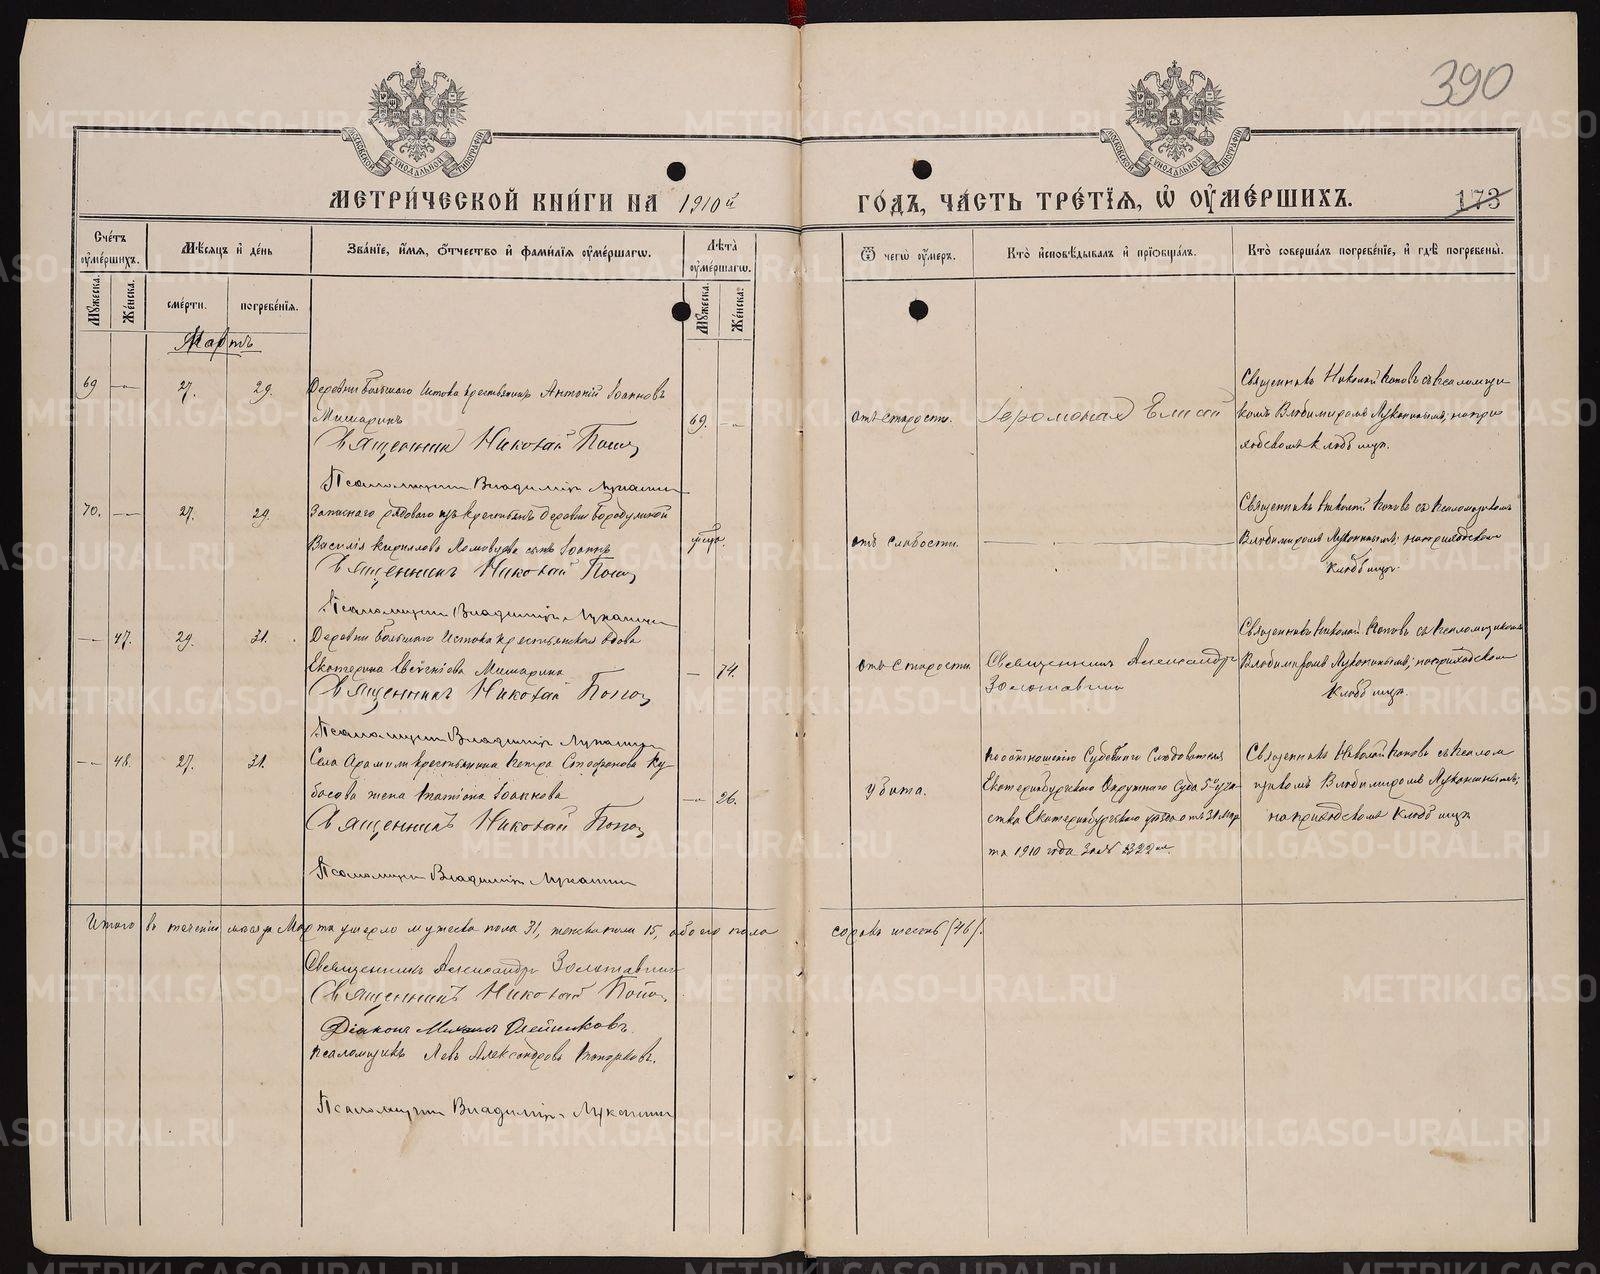 390
МЕТРИ́ЧЕСКОЙ КНИ́ГИ НА 1910й
ГО́ДЪ, ЧА́СТЬ ТРЕ́ТІѦ, Ѡ҆ ОУ҆МЕ́РШИХЪ.
173
Сче́тъ оу҆ме́ршихъ.
Мꙋ́жеска.
Же́нска.
Мѣ́сяцъ и҆ де́нь
сме́рти.
погребе́нїѧ.
Зва́нїе, и҆́мѧ, ѻ҆́тчество и҆ фами́лїѧ оу҆ме́ршагѡ.
Лѣ́та оу҆ме́ршагѡ.
Мꙋ́жеска.
Же́нска.
Ѿ чегѡ̀ оу҆́меръ.
Кто̀ и҆сповѣ́дывалъ и҆ прїѻбща́лъ.
Кто̀ соверша́лъ погребе́нїе, и҆ гдѣ̀ погребены̀.
Мартъ
69 — 27. 29. Деревни Большого Истока крестьянинъ Антоній Іоанновъ
Мишаринъ 69. —
Священникъ Николай Попов
Псаломщикъ Владиміръ Луканинъ
отъ старости.
Іеромонах Елисей
Священникъ Николай Поповъ съ псаломщи-
комъ Владимиромъ Луканинымъ; на при-
ходскомъ кладбищѣ.
70. — 27. 29. Запаснаго рядового изъ крестьянъ деревни Бородулиной
Василія Кириллова сынъ Іоаннъ
Священникъ Николай Попов
Псаломщикъ Владиміръ Луканинъ
отъ слабости. —
Священникъ Николай Поповъ съ псаломщикомъ
Владимиромъ Луканинымъ; на приходскомъ
кладбищѣ.
— 47. 29. 31. Деревни Большого Истока крестьянская вдова
Екатерина Евгеніева Мишарина — 74.
Священникъ Николай Попов
Псаломщикъ Владиміръ Луканинъ
отъ старости.
Священникъ Александръ
Золотавинъ
Священникъ Николай Поповъ съ псаломщикомъ
Владимиромъ Луканинымъ; на приходскомъ
кладбищѣ.
— 48. 27. 31. Села Арамили крестьянина Петра Стефанова Ку-
басова жена Іоаннова — 26.
Священникъ Николай Попов
Псаломщикъ Владиміръ Луканинъ
убита.
По отношенію Судебного Слѣдователя
Екатеринбургского Окружного Суда 5го уча-
стка Екатеринбургского уѣзда отъ 31 мар-
та 1910 года за № 322м.
Священникъ Николай Поповъ съ псалом-
щикомъ Владимиромъ Луканинымъ;
на приходскомъ кладбищѣ
Итого въ теченіи мѣсяца Марта умерло мужеска пола 31, женска пола 15, обоего пола
сорокъ шесть (46).
Священникъ Александръ Золотавинъ
Священникъ Николай Попов
Діаконъ Михаилъ Олейниковъ.
Псаломщикъ Левъ Александровъ Топорковъ.
Псаломщикъ Владиміръ Луканинъ
METRIKI.GASO-URAL.RU